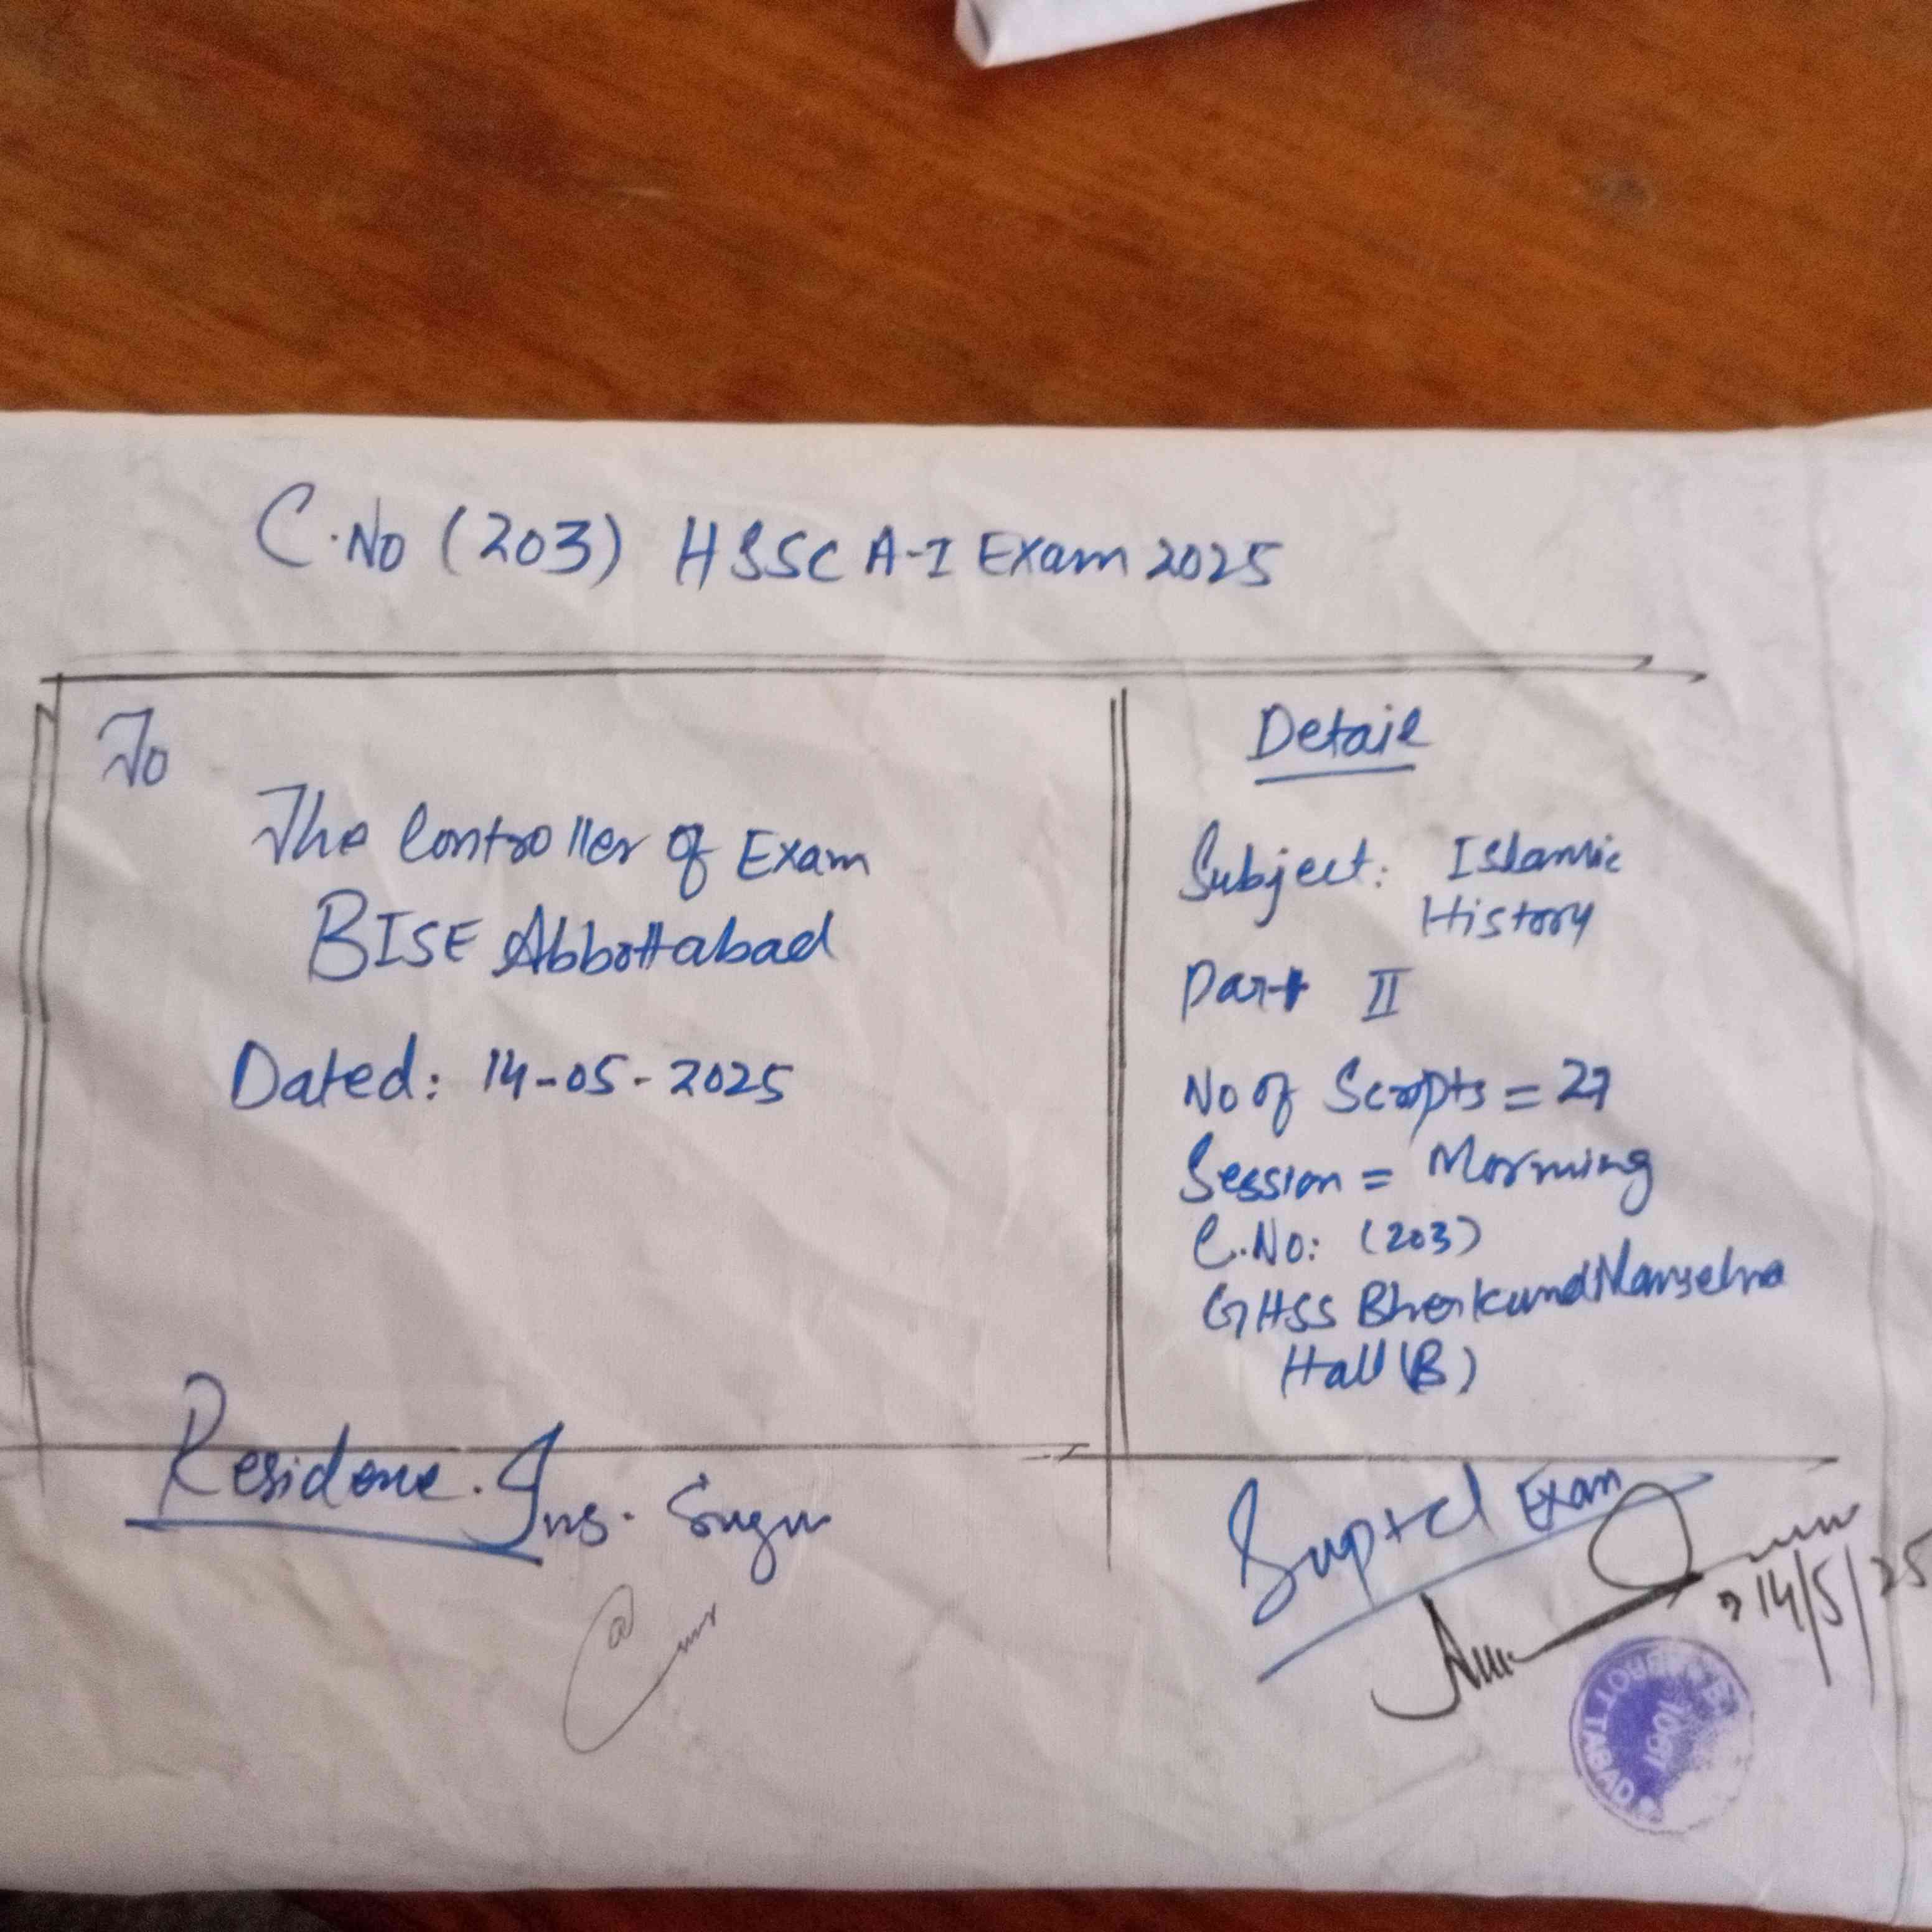 C.No (203) HSSC A-I Exam 2025
To
The Controller of Exam
BISE Abbottabad
Dated: 14-05-2025
Detail
Subject: Islamic
History
Part II
No of Scripts = 27
Session = Morning
C.No: (203)
GHSS Bherkund Mansehra
Hall (B)
Residence. Ins.
Suptd Exam
14/5/25